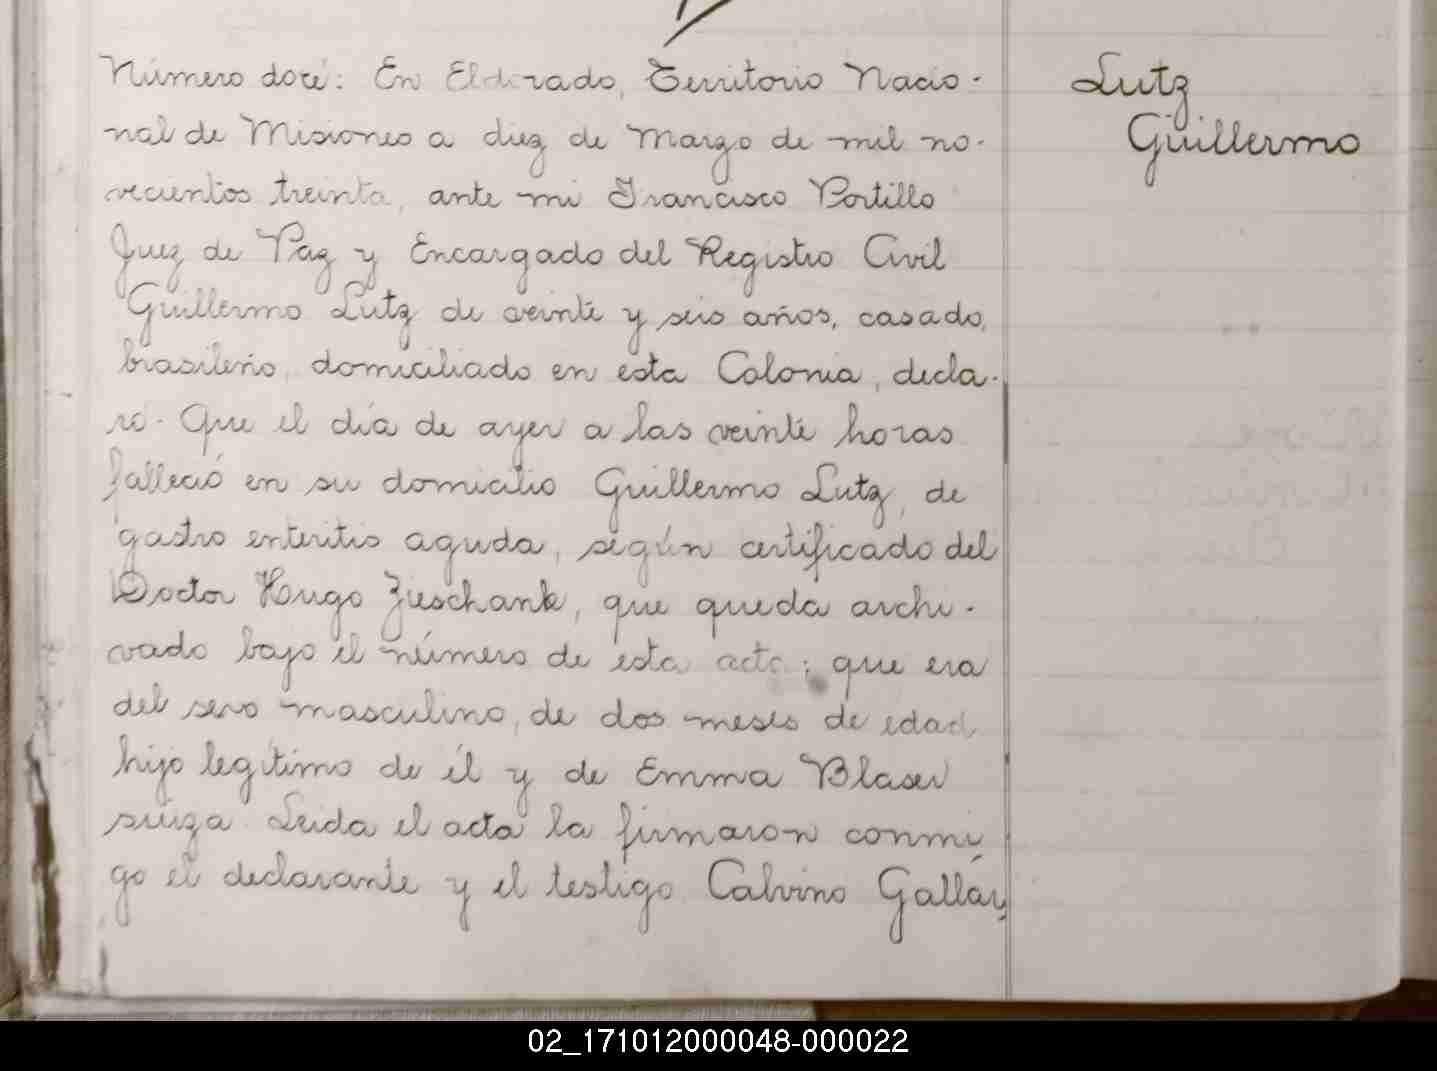 Número doce: En Eldorado, Territorio Nacio-
nal de Misiones a diez de Marzo de mil no-
vecientos treinta, ante mi Francisco Portillo
Juez de Paz y Encargado del Registro Civil
Guillermo Lutz de veinte y seis años, casado,
brasileño, domiciliado en esta Colonia, decla-
ró. Que el día de ayer a las veinte horas
falleció en su domicilio Guillermo Lutz, de
gastro enteritis aguda, según certificado del
Doctor Hugo Zieschank, que queda archi-
vado bajo el número de esta acta; que era
del sexo masculino, de dos meses de edad
hijo legítimo de él y de Emma Blaser
suiza. Leida el acta la firmaron conmi
go el declarante y el testigo Calvino Gallás,
Lutz
Guillermo
02_171012000048-000022